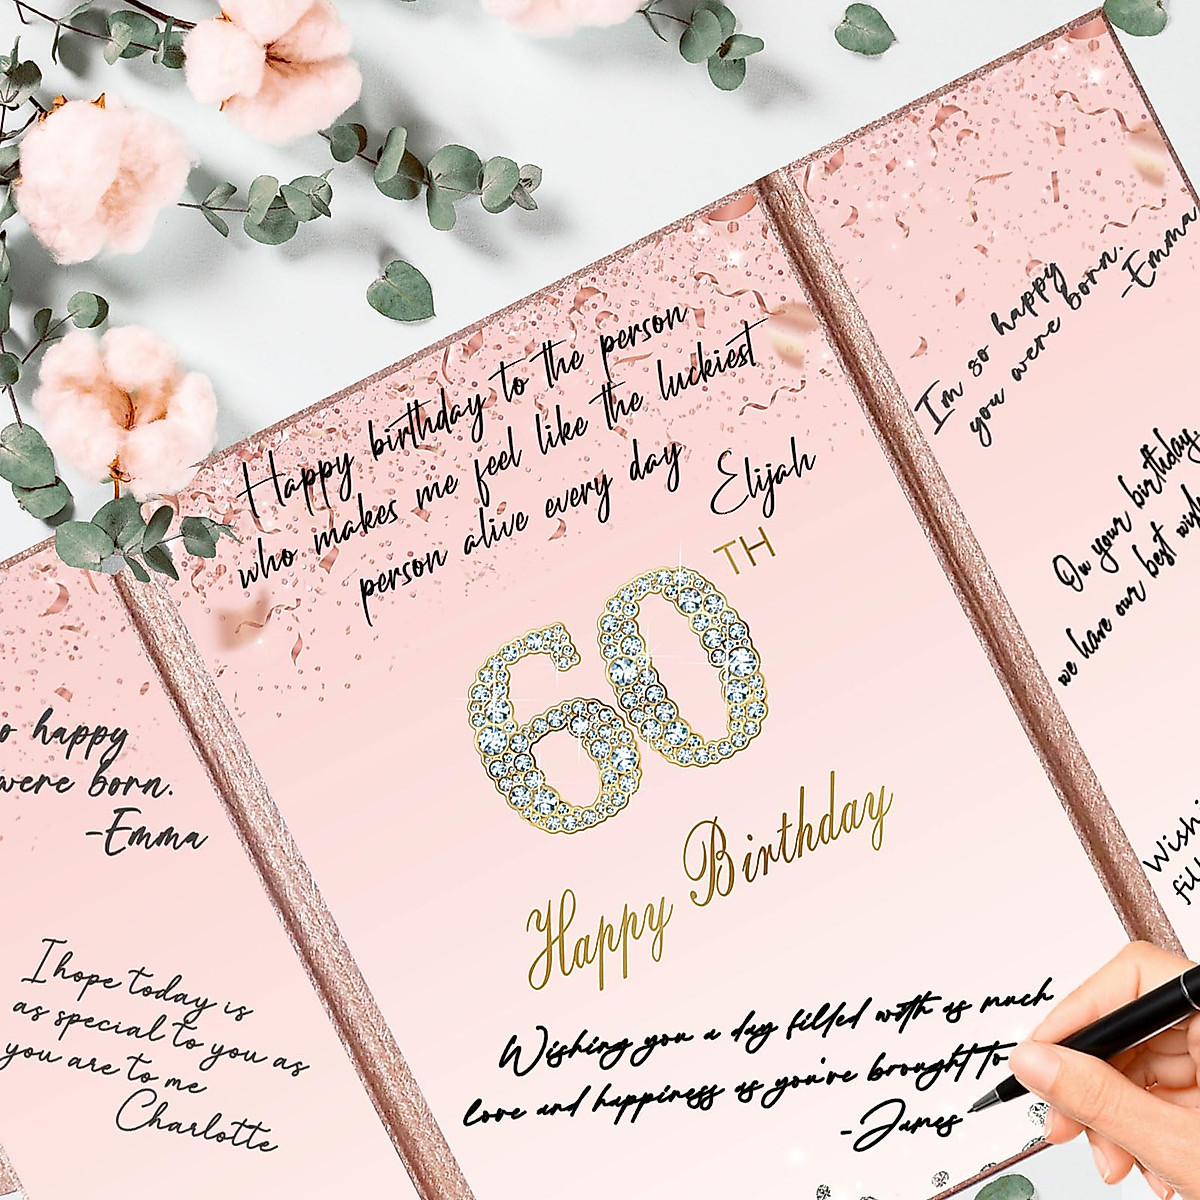 Happy birthday to the person
who makes me feel like the luckiest
person alive every day
Elijah
60
TH
Happy Birthday
Wishing you a day filled with as much
love and happiness as you've brought to
-James
happy
were born.
-Emma
I hope today is
as special to you as
you are to me
Charlotte
I'm so happy
you were born.
-Emma
On your birthday,
we have our best